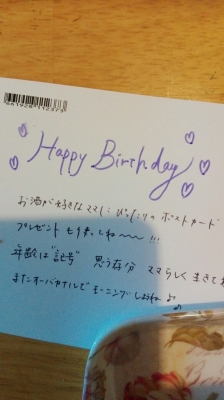 Happy Birthday
お酒が好きなママにぴったりのポストカード
プレゼントも
年齢は"記号" 思う存分 ママらしく生きて
またオーバカナルでモーニングしようね